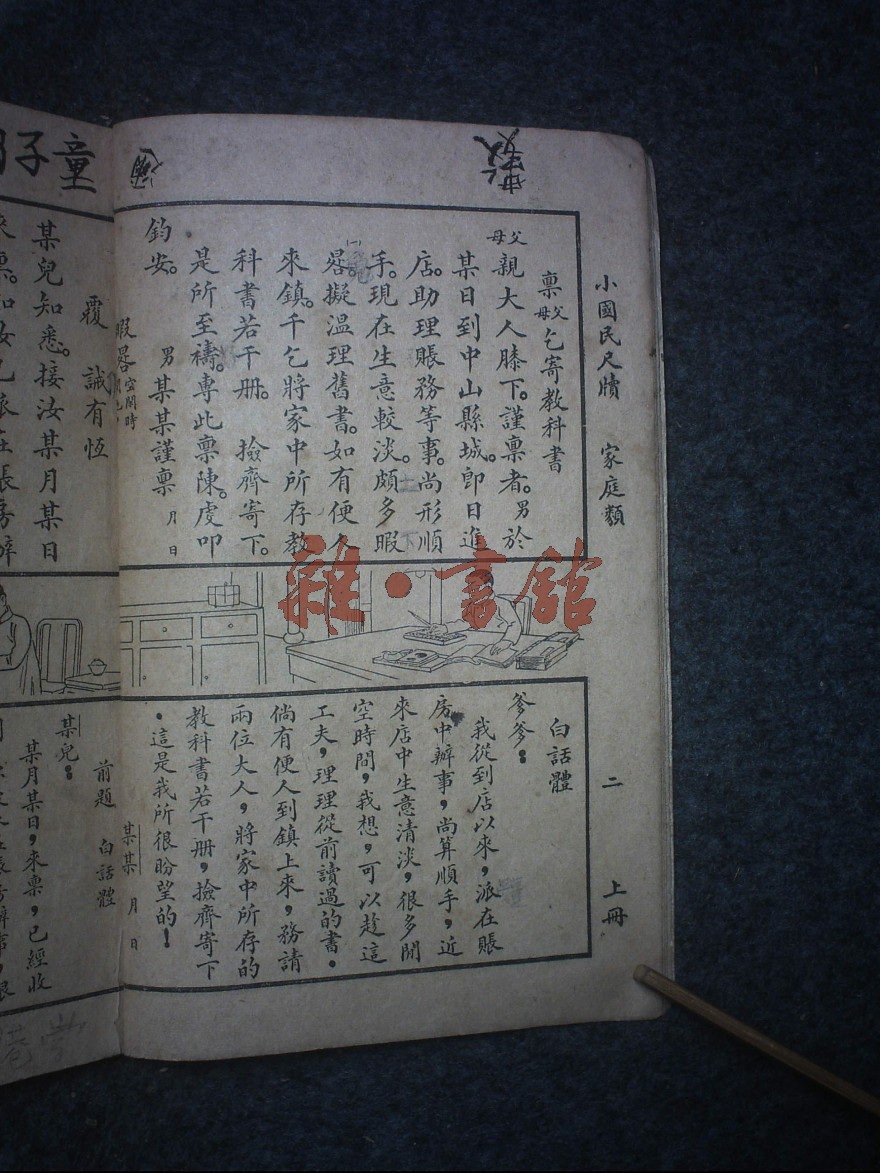 小國民尺牘 家庭類 二 上冊
稟父母乞寄教科書
父母親大人膝下。謹稟者。男於
某日到中山縣城。卽日進
店。助理賬務等事。尚形順
手。現在生意較淡。頗多暇
晷。㈠擬溫理舊書。如有便人
來鎮。千乞將家中所存教
科書若干册。撿齊寄下。
是所至禱。專此稟陳。虔叩
鈞安。
男某某謹稟 月 日
暇晷 空閒時
白話體
爹爹：
我從到店以來，派在賬
房中辦事，尚算順手，近
來店中生意清淡，很多閒
空時間，我想，可以趁這
工夫，理理從前讀過的書。
倘有便人到鎮上來，務請
兩位大人，將家中所存的
教科書若干册，撿齊寄下
。這是我所很盼望的！
某某 月 日
童子
覆 誠有恆
某兒知悉。接汝某月某日
前題 白話體
某兒：
某月某日，來稟，已經收
雜·書館